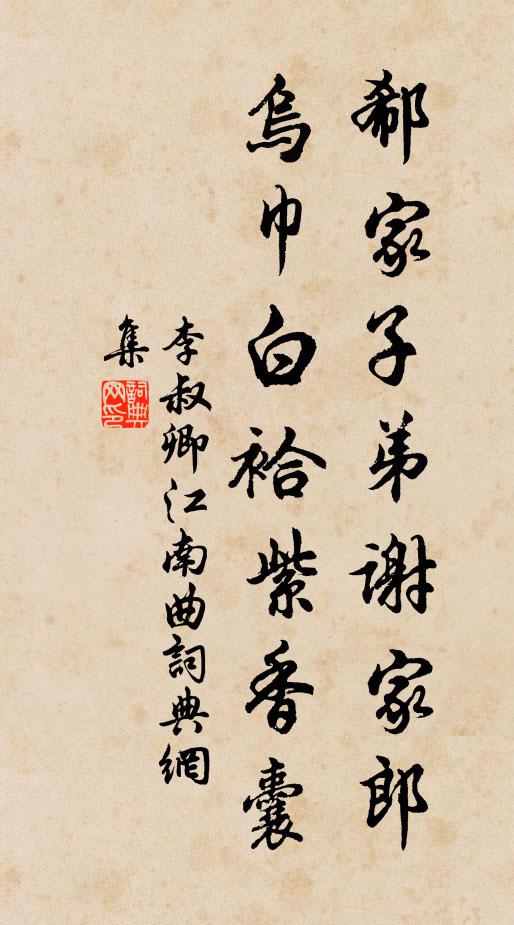 郗家子弟謝家郎
烏巾白袷紫香囊
李叔卿江南曲詞典網
集
詞典網印